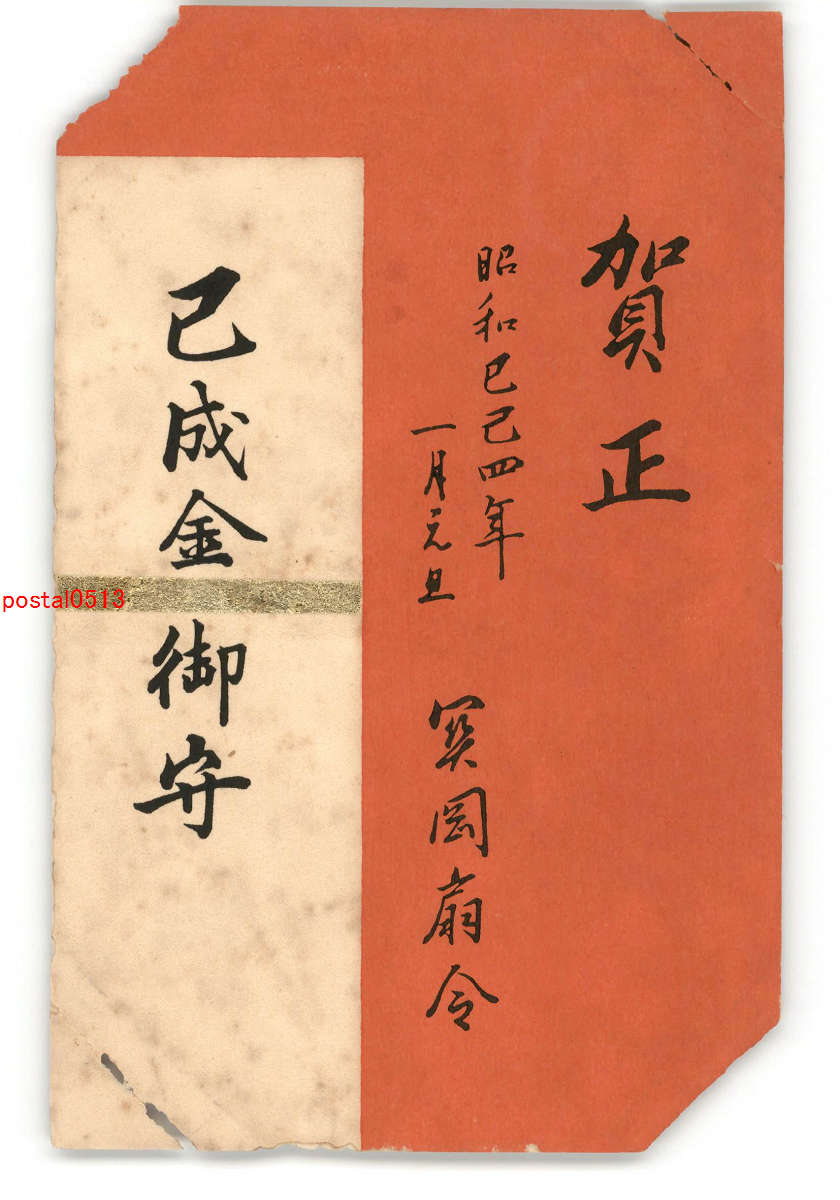 賀正
昭和己巳四年
一月元旦
岡扇令
巳成金御守
postal0513